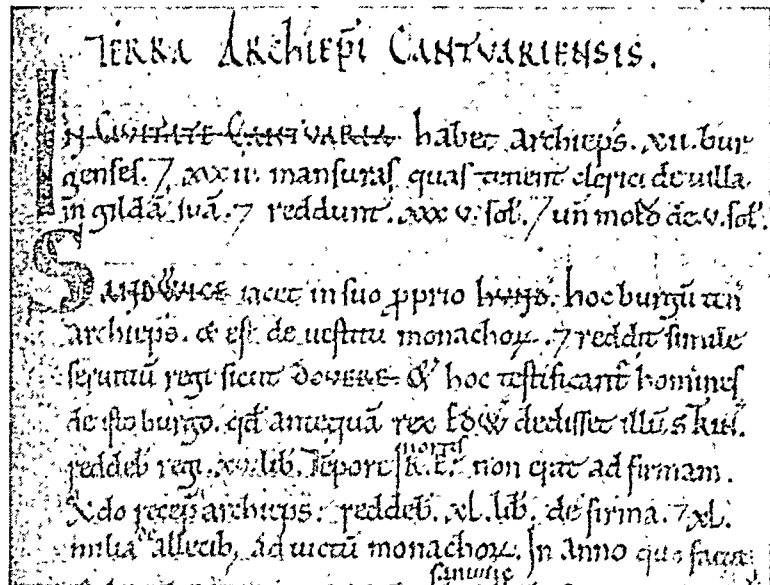 TERRA ARCHIEP̄I CANTVARIENSIS.
IN CIVITATE CANTVARIA habet archiep̄s. xii. bur
genses. ⁊ xxxii. mansuras quas tenent clerici de uilla
in gildā suā. ⁊ reddunt. xxxv. sol̄. ⁊ un̄ mold̄ de. v. sol̄.
SANDWICE iacet in suo ꝓprio hund̄. hoc burgū ten̄
archiep̄s. & est de uestitu monachoꝝ. ⁊ reddit simile
seruitiū regi sicut DOVERE. & hoc testificant̄ homines
de isto burgo. qd̄ antequā rex EDW dedisset illū. s
reddeb̄ regi. xv. lib̄. Tēpore mortis R. E. non erat ad firmam.
Q̄do recep̄ archiep̄s. reddeb̄. xl. lib̄. de firma. ⁊ xl.
milia de allecib; ad uictū monachoꝝ. In anno quo facta